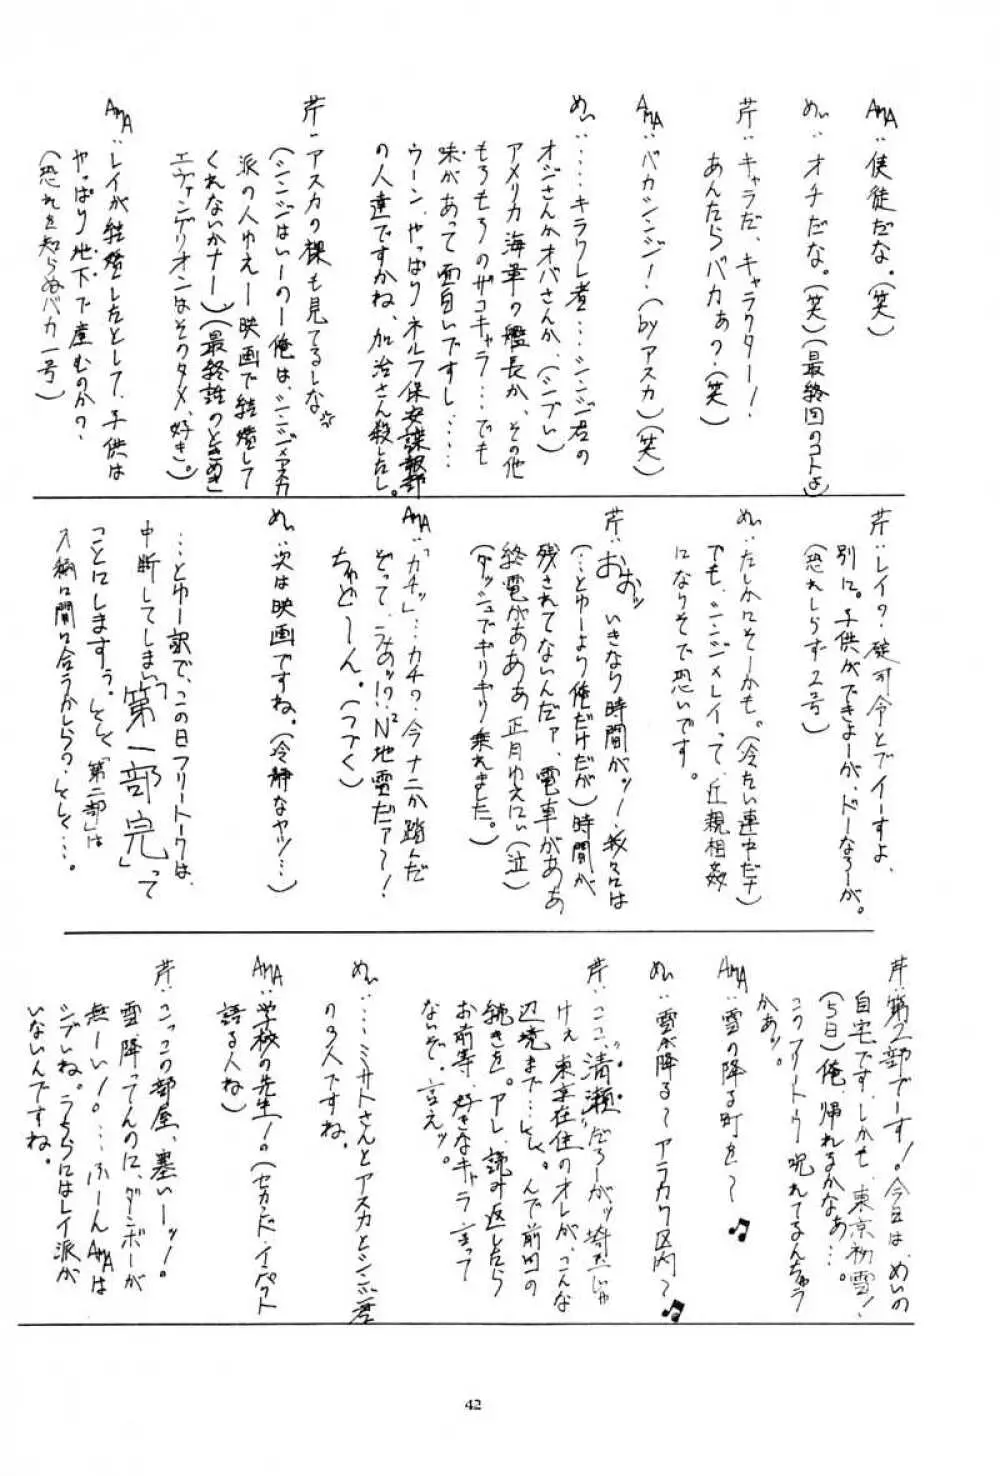 AMA：使徒だな。(笑)
めぃ：オチだな。(笑)(最終回のコトよ)
芹：キャラだ、キャラクター！
あんたらバカぁ？(笑)
AMA：バカシンジ！(byアスカ)(笑)
めぃ：…キラワレ者…シンジ君の
オジさんかオバさんか、(シブい)
アメリカ海軍の艦長か、その他
もろもろのザコキャラ…でも
味があって面白いですし……
ウーン、やっぱりネルフ保安諜報部
の人達ですかね、加治さん殺したし。
芹：アスカの裸も見てるしな
(シンジはいーのー俺は、シンジ×アスカ
派の人ゆえー映画で結婚して
くれないかナー)(最終話のときめき
エヴァンゲリオンはそのタメ、好き。)
AMA：レイが結婚したとして、子供は
やっぱり地下で産むのかの？
(恐れを知らぬバカ一号)
芹：レイの？碇司令とデイーすよ、
別に。子供ができよーが、ドーなろーが。
(恐れしらず2号)
めぃ：たしかにそーかも。(冷たい連中だナ)
でも、シンジ×レイって、近親相姦
になりそで恐いです。
芹：おおッ いきなり時間がッ！我々には
(…とゆーより俺だけだが)時間が
残されてないんだァ、電車がああ
終電がああぁ正月ゆえにぃ(泣)
(ダッシュでギリギリ乗れました。)
AMA：「カチッ」…カチの？今ナニか踏んだ
ぞって、うぬッ!?N²地雷だァ～！
ちゅどーん。(つづく)
めぃ：次は映画ですね。(冷静なヤツ！…)
…とゆー訳で、この日フリートークは、
中断してしまい「第一部完」って
ことにしますぅ。そして「第二部」は
入稿に間に合うかしらの、そして…。
芹：第二部でーす！。今日は、めぃの
自宅です。しかも、東京初雪！
(5日)俺、帰れるかなぁ…。
このフリートーク呪われてるんちゃう
かぁッ。
AMA：雪の降る町を～♪
めぃ：雪が降る～アラカワ区内～♪
芹：ここ、清瀬だろーがッ埼玉じゃ
けぇ 東京在住のオレが、こんな
辺境まで…しくしく。んで前回の
続きを。アレ、読み返したら
お前等、好きなキャラ言って
ないぞ。言えッ。
めぃ：…ミサトさんとアスカとシンジ君
の3人ですね。
AMA：学校の先生！の(セカンド・インパクト
語る人ね)
芹：こっこの部屋、寒いーッ！。
雪、降ってんのに、ダンボーが
無ーい！。…ふーんAMAは
シブいね。うちらにはレイ派が
いないんですね。
42